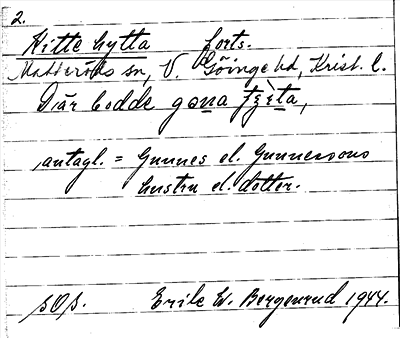 2.
Kitte hytta forts.
Matteröds sn, V. Göinge hd, Krist. l.
Där bodde
antagl. = Gunnes el. Gunnessons
hustru el. dotter.
sOs. Erik W. Bergenrud 1944.